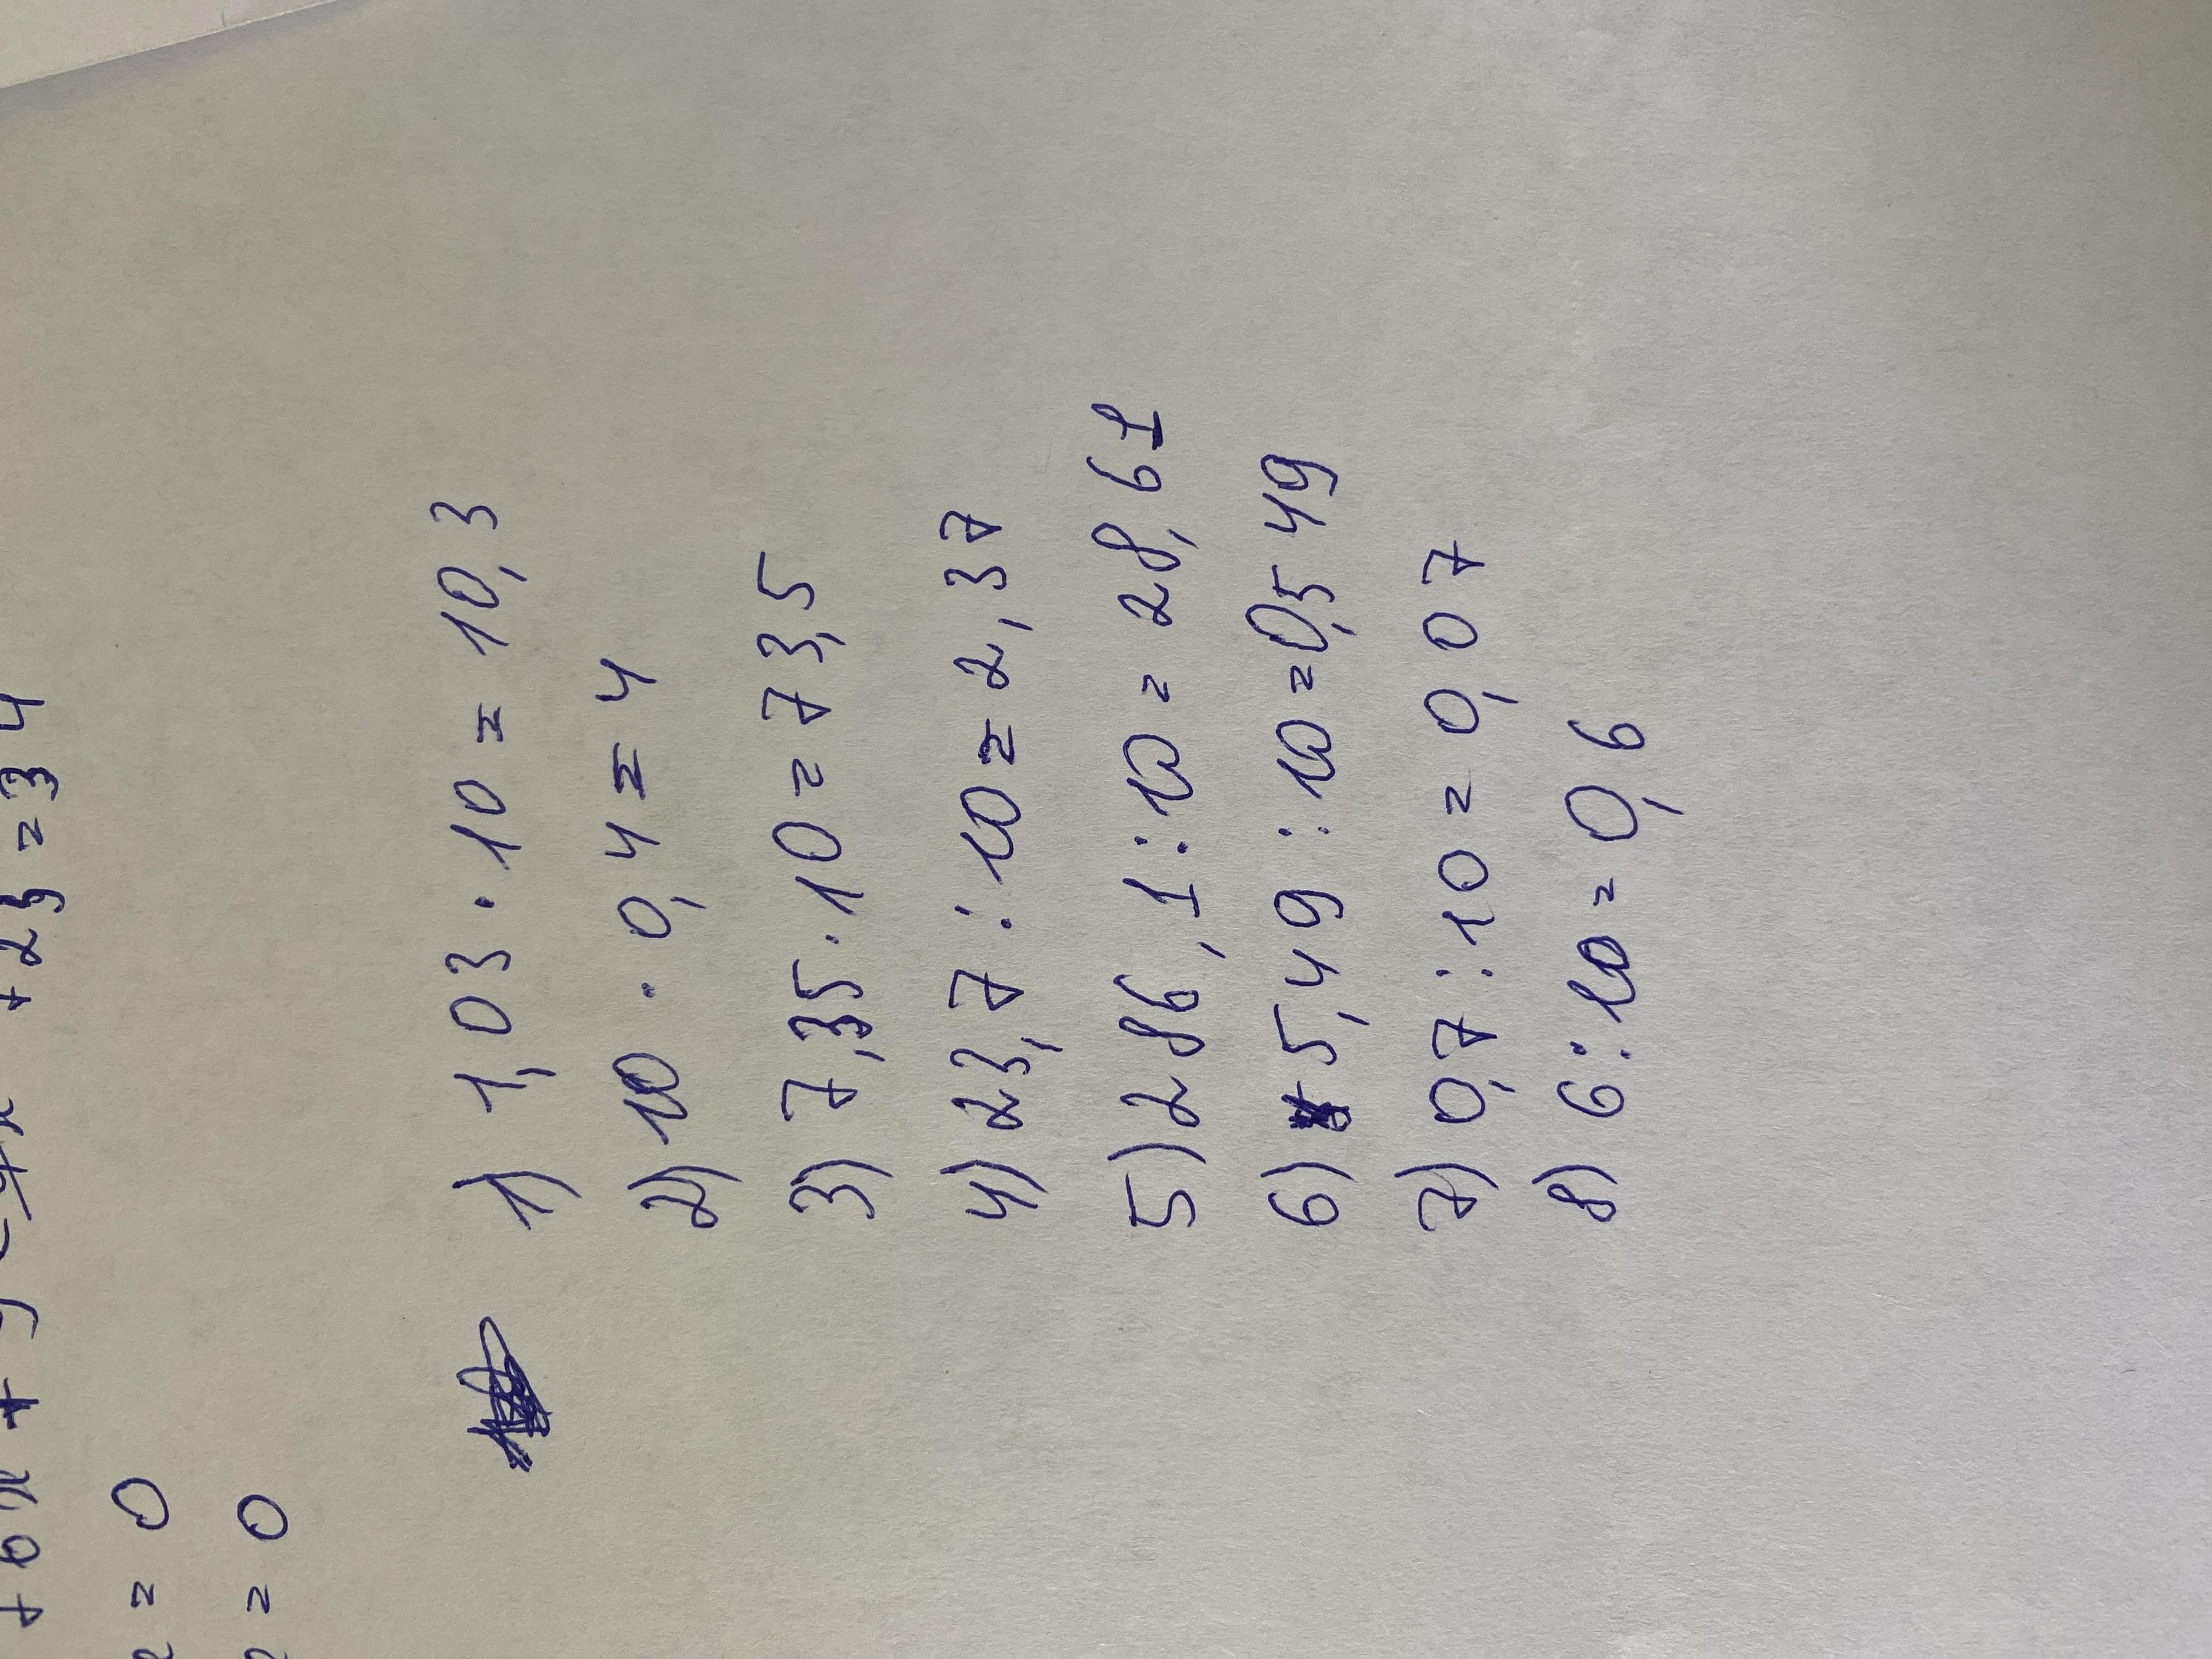 +25=34
= 0
= 0
1) 1,03 · 10 = 10,3
2) 10 · 0,4 = 4
3) 7,35 · 10 = 73,5
4) 23,7 : 10 = 2,37
5) 286,1 : 10 = 28,61
6) 5,49 : 10 = 0,549
7) 0,7 : 10 = 0,07
8) 6 : 10 = 0,6